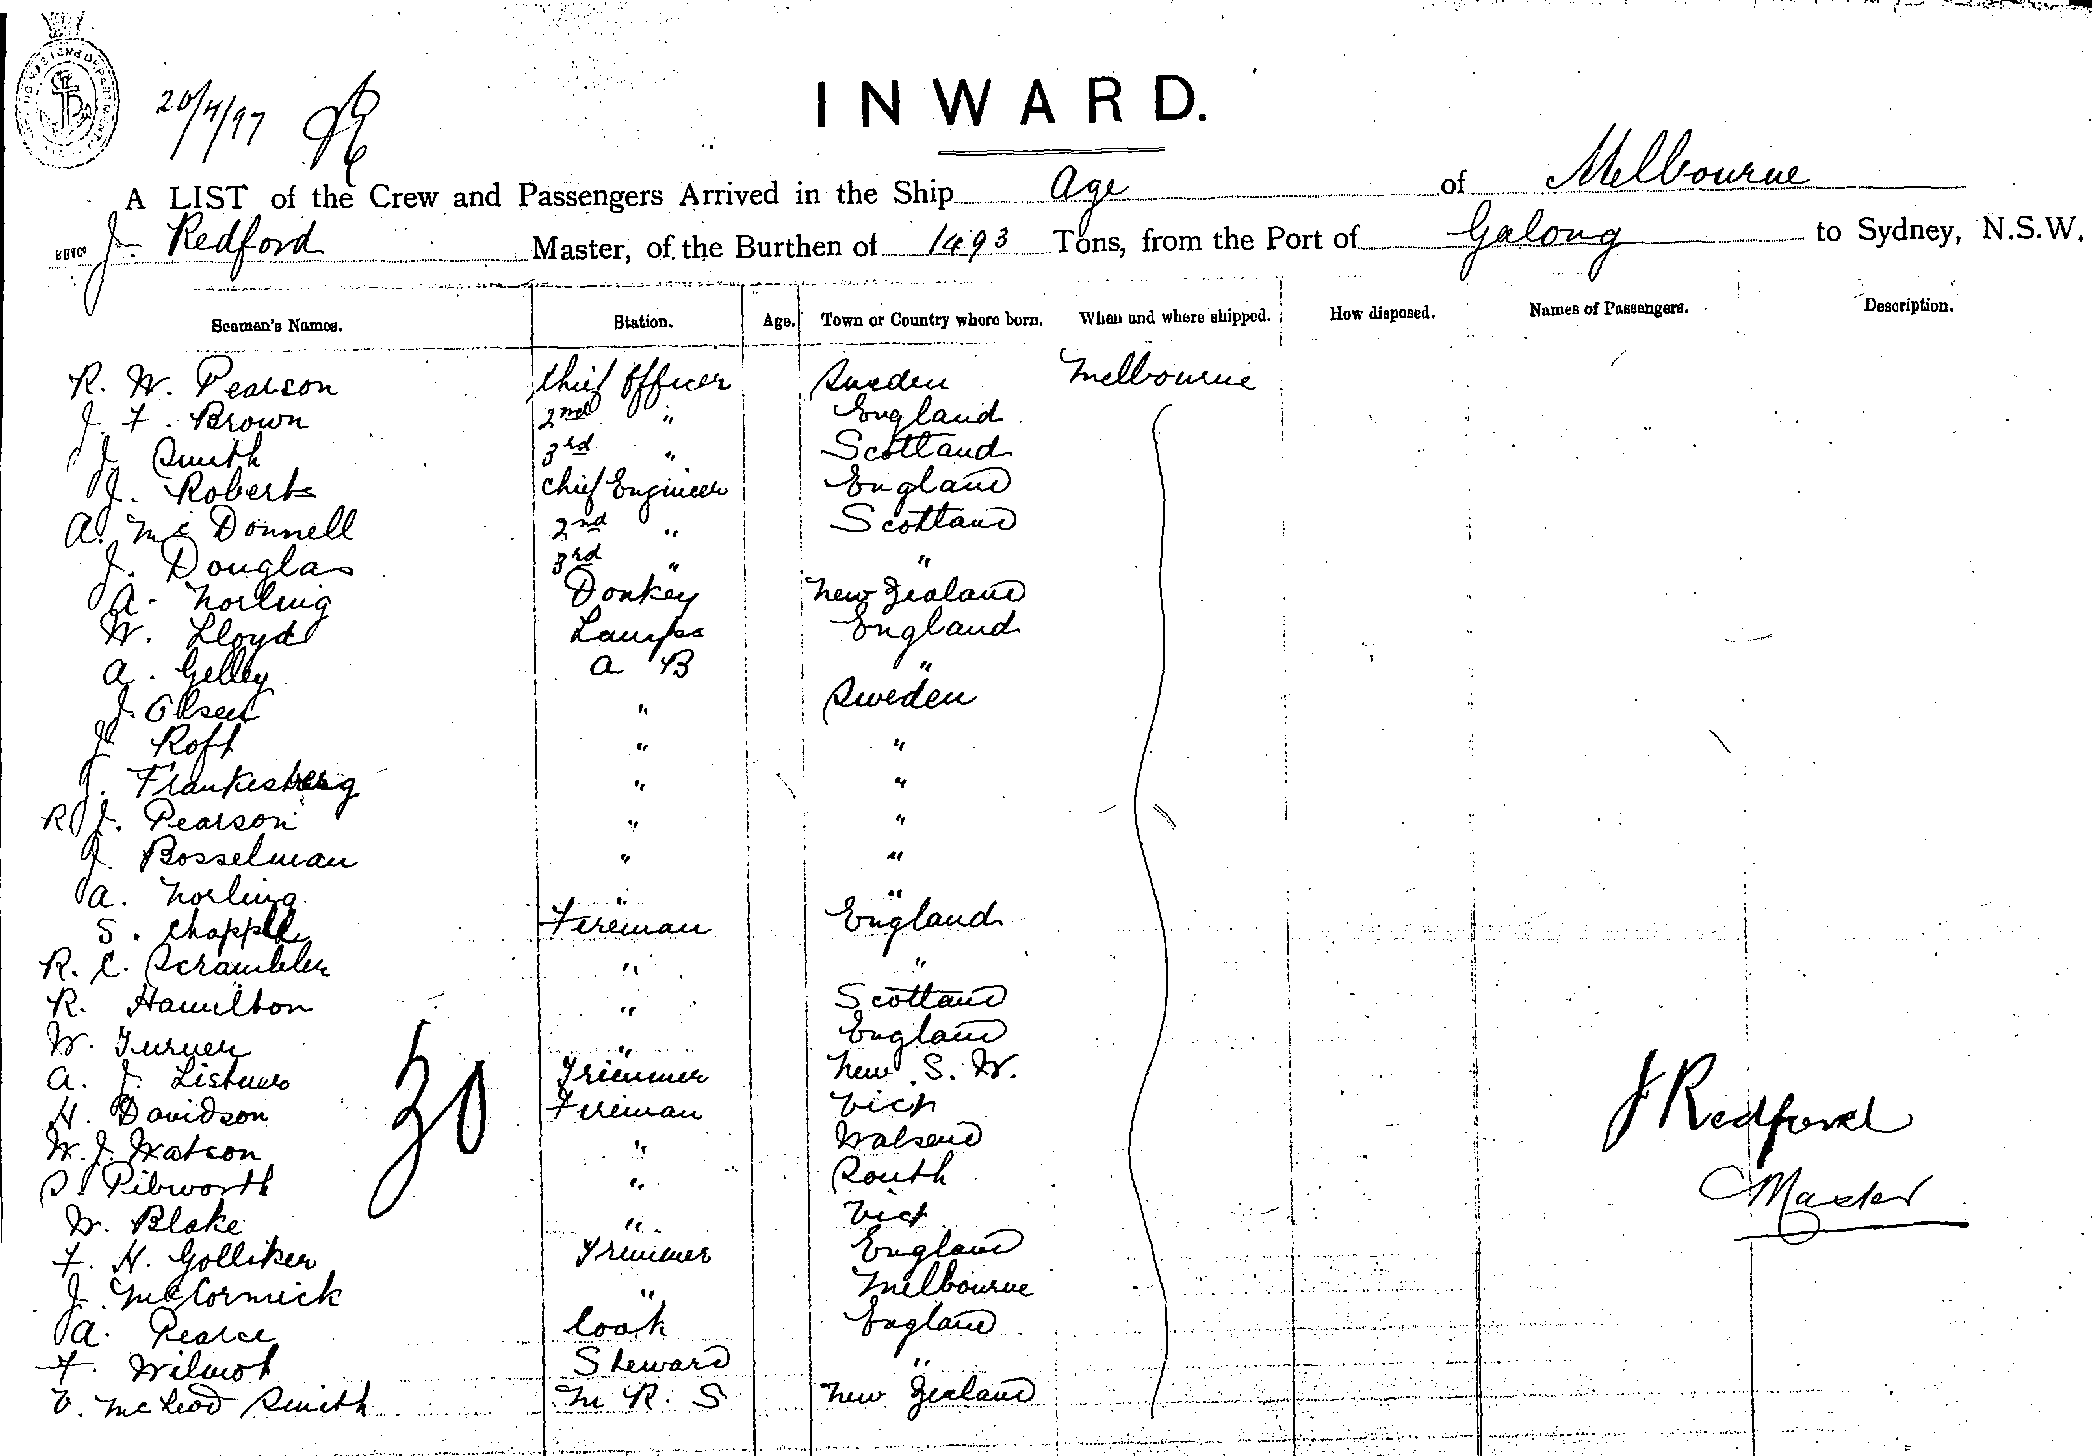 20/4/97
INWARD.
A LIST of the Crew and Passengers Arrived in the Ship Age of Melbourne
J. Redford Master, of the Burthen of 1493 Tons, from the Port of Galong to Sydney, N.S.W.
Seaman's Names. Station. Age. Town or Country where born. When and where shipped. How disposed. Names of Passengers. Description.
R. W. Pearson Chief Officer Sweden Melbourne
J. F. Brown 2nd " England
J. Smith 3rd " Scotland
J. Roberts Chief Engineer England
A. McDonnell 2nd " Scotland
J. Douglas 3rd " "
A. Norling Donkey New Zealand
W. Lloyd Lamps England
A. Gelley A B "
J. Olsen " Sweden
J. Roft " "
J. Frankesberg " "
R J. Pearson " "
J. Bosselman " "
A. Norling " "
S. Chapple Fireman England
R. C. Scrambler " "
R. Hamilton " Scotland
W. Turner " England
A. J. Trimmer New S. W.
H. Davidson Fireman Vict
W. J. Watson " Walsend
S. Pibworth " South
W. Blake " Vict
F. H. Golliker Trimmer England
J. McCormick " Melbourne
A. Pearce Cook England
F. Wilmot Steward "
McLeod Smith M R. S New Zealand
30
J Redford
Master